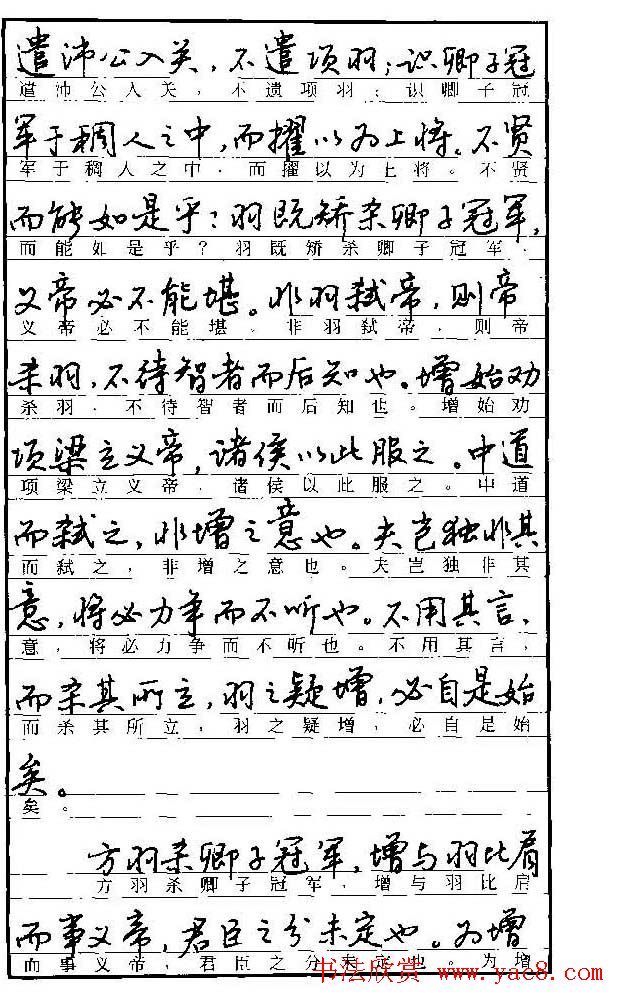 遣沛公入关，不遣项羽；识卿子冠
遣沛公入关，不遣项羽；识卿子冠
军于稠人之中，而擢以为上将。不贤
军于稠人之中，而擢以为上将。不贤
而能如是乎？羽既矫杀卿子冠军，
而能如是乎？羽既矫杀卿子冠军，
义帝必不能堪。非羽弑帝，则帝
义帝必不能堪。非羽弑帝，则帝
杀羽，不待智者而后知也。增始劝
杀羽，不待智者而后知也。增始劝
项梁立义帝，诸侯以此服之。中道
项梁立义帝，诸侯以此服之。中道
而弑之，非增之意也。夫岂独非其
而弑之，非增之意也。夫岂独非其
意，将必力争而不听也。不用其言，
意，将必力争而不听也。不用其言，
而杀其所立，羽之疑增，必自是始
而杀其所立，羽之疑增，必自是始
矣。
矣。
方羽杀卿子冠军，增与羽比肩
方羽杀卿子冠军，增与羽比肩
而事义帝，君臣之分未定也。为增
而事义帝，君臣之分未定也。为增
书法欣赏 www.yac8.com